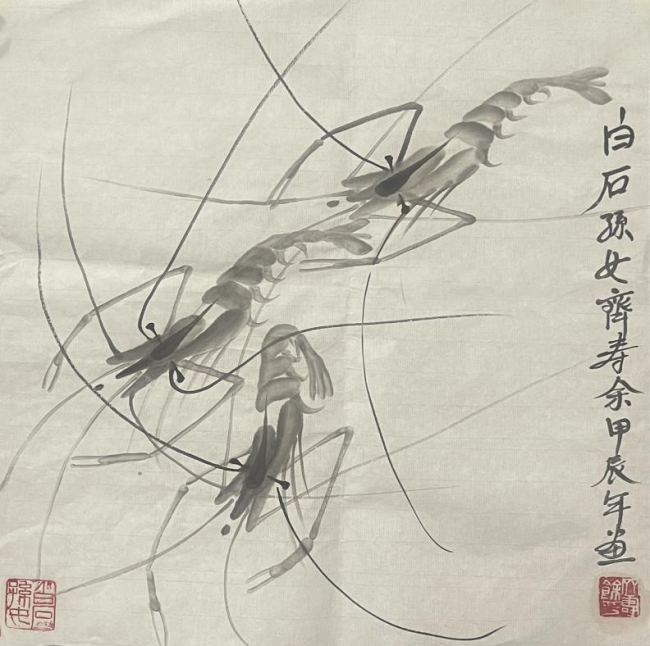 白石孫女齊寿余甲辰年畫